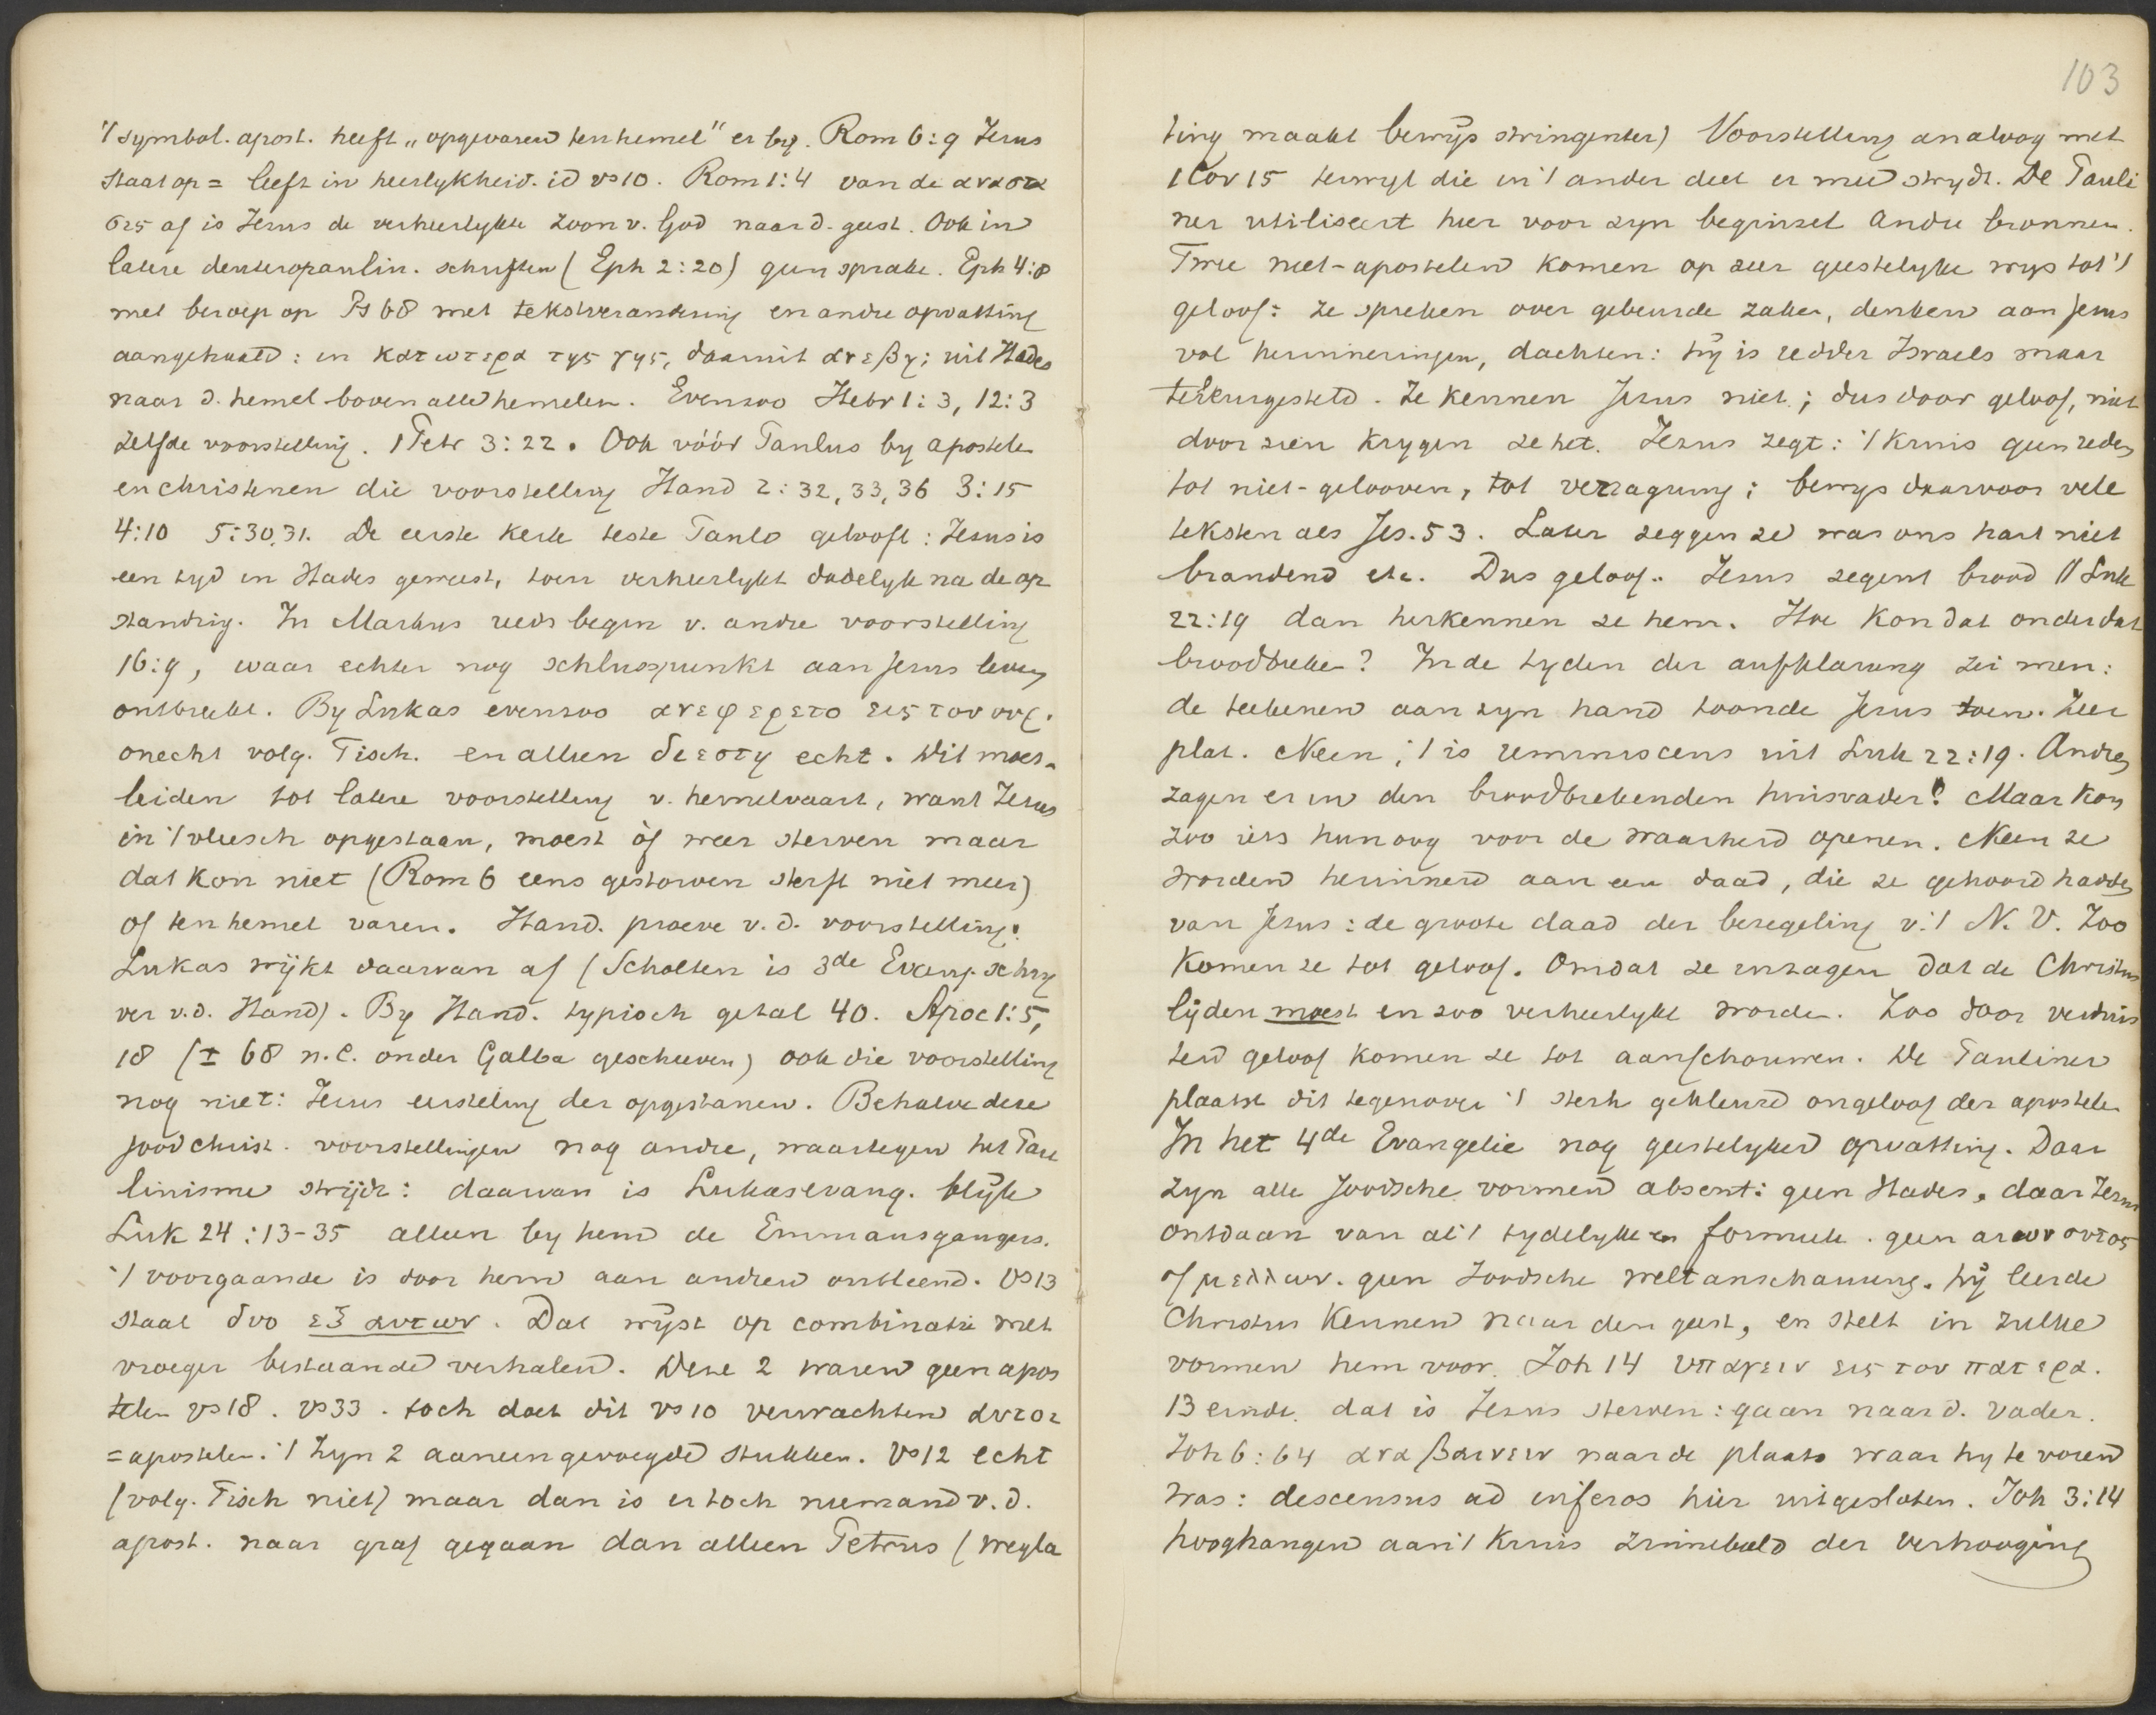 't symbol. apost. heeft „opgevaren ten hemel" er by. Rom 6:9 Jezus
staat op = leeft in heerlykheid. id vs 10. Rom 1:4 van de αναστα
σις af is Jezus de verheerlykte zoon v. God naar d. geest. Ook in
latere deuteropaulin. schriften (Eph 2:20) geen sprake. Eph 4:8
met beroep op Ps 68 met tekstverandering en andre opvatting
aangehaald: in κατωτερα της γης, daaruit ανεβη; uit Hades
naar d. hemel boven alle hemelen. Evenzoo Hebr 1:3, 12:3
zelfde voorstelling. 1 Petr 3:22. Ook vóór Paulus by apostelen
en christenen die voorstelling Hand 2:32,33,36 3:15
4:10 5:30,31. De eerste kerk teste Paulo gelooft: Jezus is
een tyd in Hades geweest, toen verheerlykt dadelyk na de op
standing. In Markus reeds begin v. andre voorstelling
16:9, waar echter nog schluszpunkt aan Jezus leven
ontbreekt. By Lukas evenzoo ανεφερετο εις τον ουρ.
onecht volg. Tisch. en alleen διεστη echt. Dit moest
leiden tot latere voorstelling v. hemelvaart, want Jezus
in 't vleesch opgestaan, moest òf weer sterven maar
dat kon niet (Rom 6 eens gestorven sterft niet meer)
of ten hemel varen. Hand. proeve v. d. voorstelling:
Lukas wijkt daarvan af (Scholten is 3de Evang. schry
ver v.d. Hand). By Hand. typisch getal 40. Apoc 1:5,
18 (± 68 n.C. onder Galba geschreven) ook die voorstelling
nog niet: Jezus eersteling der opgestanen. Behalve deze
joodchrist. voorstellingen nog andre, waartegen het Pau
linisme strijdt: daarvan is Lukasevang. blijk
Luk 24:13-35 alleen by hem de Emmausgangers.
't voorgaande is door hem aan andren ontleend. Vs 13
staat δυο εξ αυτων. Dat wyst op combinatie met
vroeger bestaande verhalen. Deze 2 waren geen apos
telen vs 18. vs 33. toch doet dit vs 10 verwachten αυτοι
= apostelen. 't Zyn 2 aaneengevoegde stukken. Vs 12 echt
(volg. Tisch niet) maar dan is er toch niemand v. d.
apost. naar graf gegaan dan alleen Petrus (wegla
103
ting maakt bewijs stringenter) Voorstelling analoog met
1 Cor 15 terwyl die in 't ander deel er mee strydt. De Pauli
ner utiliseert hier voor zyn beginsel andre bronnen.
Twee niet-apostelen komen op zeer geestelyke wys tot 't
geloof: ze spreken over gebeurde zaken, denken aan Jezus
vol herinneringen, dachten: hij is redder Israels maar
teleurgesteld. Ze kennen Jezus niet; dus door geloof, niet
door zien krygen ze het. Jezus zegt: 't kruis geen reden
tot niet-gelooven, tot vertraging; bewys daarvoor vele
teksten als Jes. 53. Later zeggen ze was ons hart niet
brandend etc. Dus geloof. Jezus zegent brood // Luk
22:19 dan herkennen ze hem. Hoe kon dat onder dat
broodbreken? In de tyden der aufklarung zei men:
de teekenen aan zyn hand toonde Jezus toen. Zeer
plat. Neen; 't is reminiscens uit Luk 22:19. Andren
zagen er in den broodbrekenden huisvader! Maar kon
zoo iets hun oog voor de waarheid openen. Neen ze
worden herinnerd aan een daad, die ze gehoord hadden
van Jezus: de groote daad der bezegeling v. 't N. V. Zoo
komen ze tot geloof. Omdat ze inzagen dat de Christus
lijden moest en zoo verheerlykt worden. Zoo door verduis
terd geloof komen ze tot aanschouwen. De Pauliner
plaatst dit tegenover 't sterk gekleurd ongeloof der apostelen
In het 4de Evangelie nog geestelyker opvatting. Daar
zyn alle Joodsche vormen absent: geen Hades, daar Jezus
ontdaan van al 't tydelyke en formeele. geen αιων ουτος
of μελλων. geen Joodsche weltanschauung. hij leerde
Christus kennen naar den geest, en stelt in zulke
vormen hem voor. Joh 14 υπαγειν εις τον πατερα.
13 einde. dat is Jezus sterven: gaan naar d. Vader.
Joh 6:64 αναβαινειν naar de plaats waar hy te voren
was: descensus ad inferos hier uitgesloten. Joh 3:14
hooghangen aan 't kruis zinnebeeld der verhooging